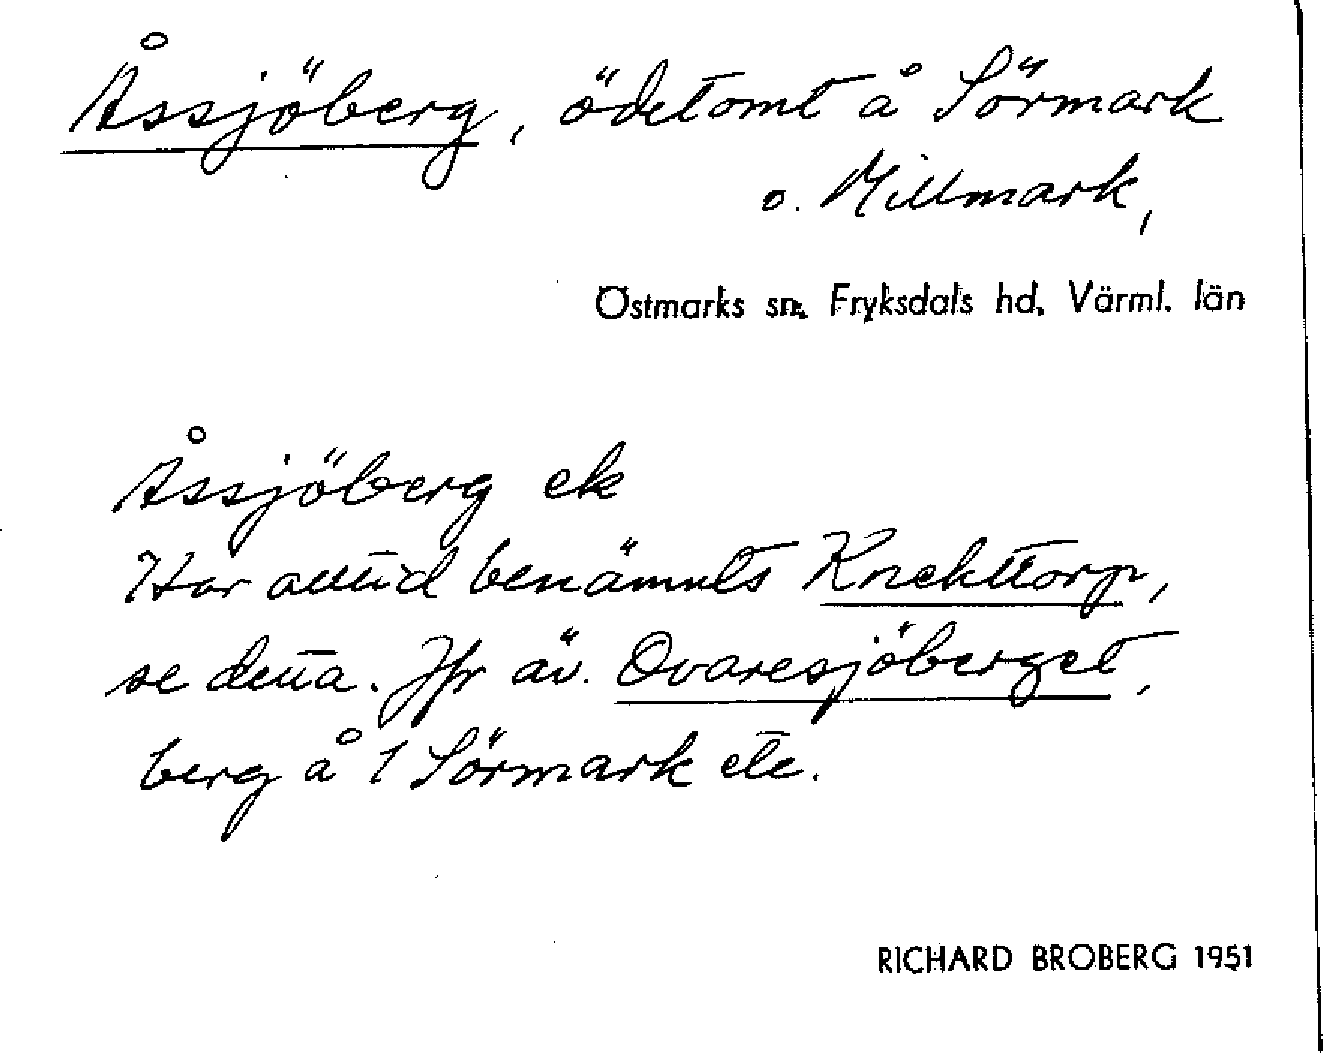 Åssjöberg, ödetomt å Sörmark
o. Millmark,
Östmarks sn. Fryksdals hd. Värml. län
Åssjöberg ek
Har alltid benämnts Knekttorp,
se detta. Jfr äv. Ovaresjöberget,
berg å 1 Sörmark etc.
RICHARD BROBERG 1951